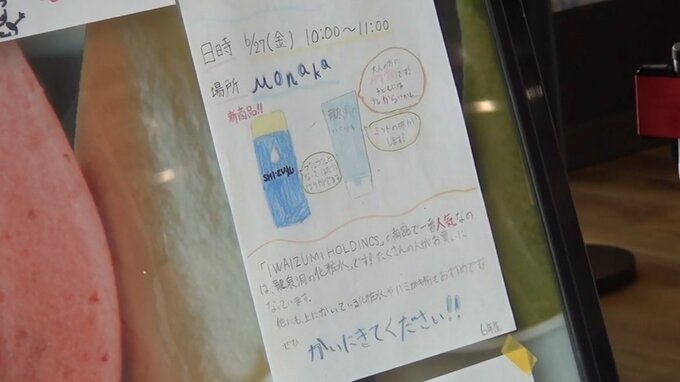 日時 6/27(金) 10:00~11:00
場所 monaka
新商品!!
大人の方に
SHIZUKU
ミントの味が
します!
「IWAIZUMI HOLDINGS」の商品で一番人気なの
は、龍泉洞の化粧水です!たくさんの人がお買いに
なっています。
他にも、上にかいている化粧水やハミガキ粉もおすすめです
ぜひ かいにきてください!!
6年生